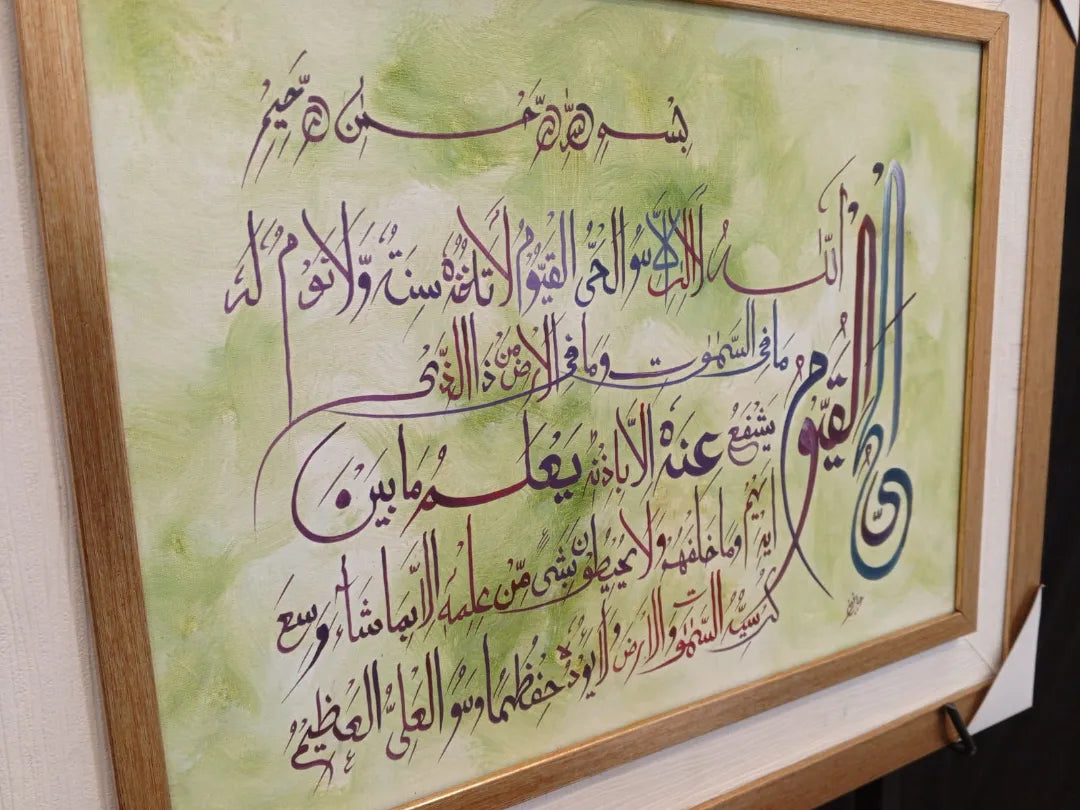 بسم الله الرحمن الرحيم
الحي القيوم
الله لا اله الا هو الحي القيوم لا تأخذه سنة ولا نوم له
ما في السموت وما في الارض من ذا الذي
يشفع عنده الا باذنه يعلم ما بين
ايديهم وما خلفهم ولا يحيطون بشيء من علمه الا بما شاء وسع
كرسيه السموت والارض ولا يؤده حفظهما وهو العلي العظيم